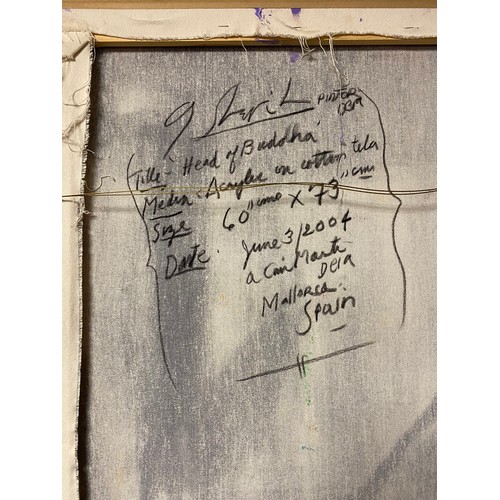 Title - 'Head of Buddha'
Media - Acrylic on cotton tela
Size 60 "cms x 73 "cms
Date. June 3/2004
a Can
Deia
Mallorca.
Spain